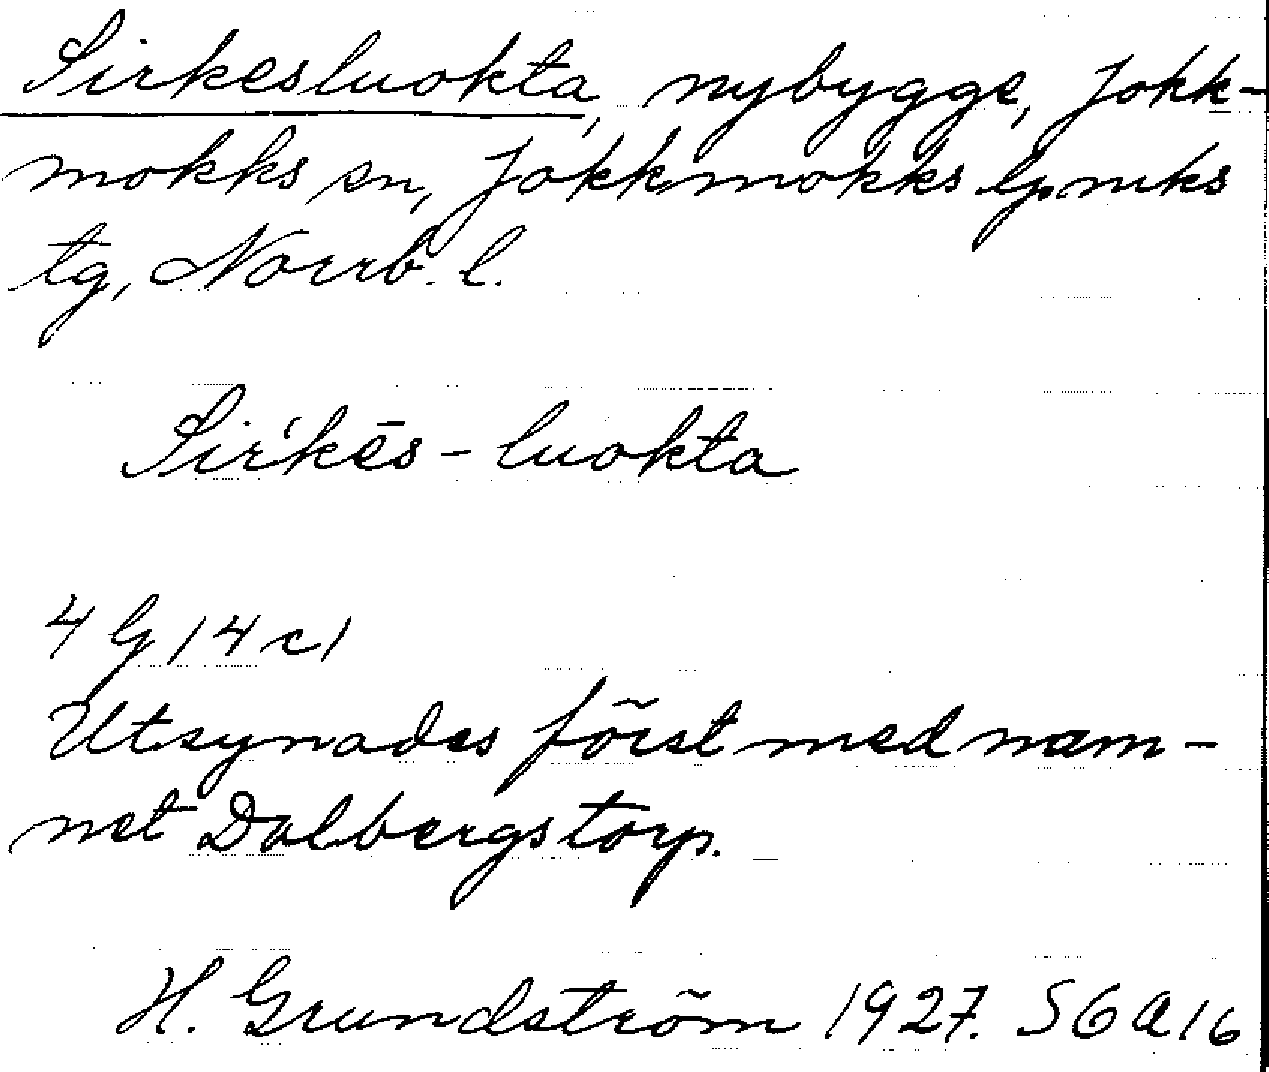 Sirkesluokta, nybygge, Jokk-
mokks sn, Jokkmokks lpmks
tg, Norrb. l.
Sir'kēs-luokta
4 G 14 c 1
Utsynades först med nam-
net Dalbergstorp.
H. Grundström 1927. S6a16